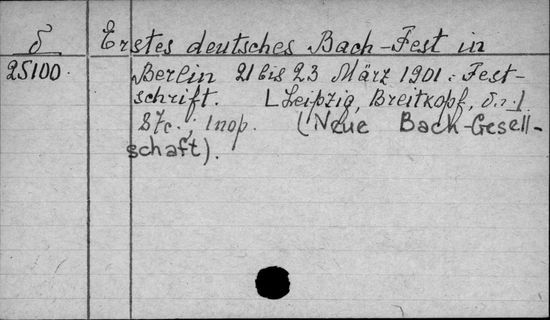 δ Erstes deutsches Bach-Fest in
25100. Berlin 21 bis 23 März 1901. Fest-
schrift. Leipzig, Breitkopf,
87c., Inop. (Neue Bach-Gesell-
schaft).